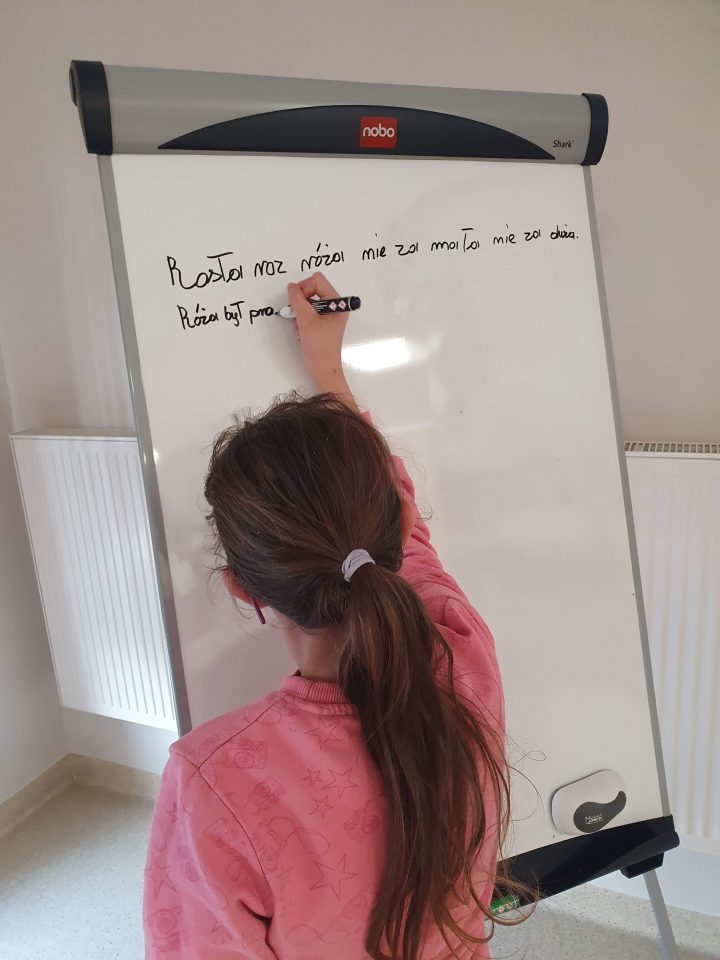 nobo
Shark
Rosła raz róża nie za mała nie za duża.
Róża był pra